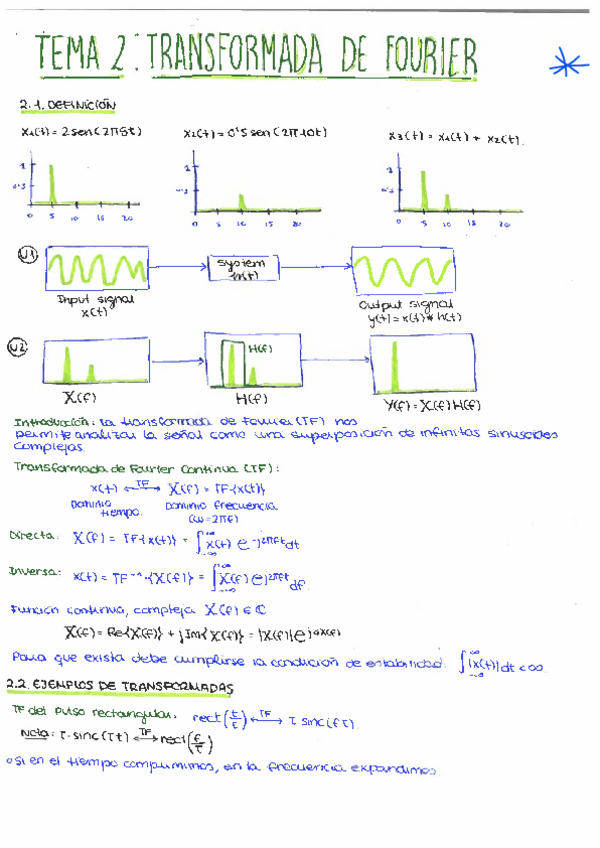 TEMA 2: TRANSFORMADA DE FOURIER
2.1. DEFINICIÓN
x₁(t) = 2 sen(2π5t)
x₂(t) = 0'5 sen(2π10t)
x₃(t) = x₁(t) + x₂(t).
0 5 10 15 20
0 5 10 15 20
0 5 10 15 20
V1
System
h(t)
Input signal
x(t)
Output signal
y(t) = x(t) * h(t)
V2
H(f)
X(f)
H(f)
Y(f) = X(f) H(f)
Introducción: la transformada de Fourier (TF) nos
permite analizar la señal como una superposición de infinitas sinusoides
complejas.
Transformada de Fourier Continua (TF):
x(t) ←TF→ X(f) = TF{x(t)}
Dominio tiempo.
Dominio frecuencia
(ω = 2πf)
Directa: X(f) = TF{x(t)} = ∫_{-∞}^{∞} x(t) e^{-j2πft} dt
Inversa: x(t) = TF⁻¹{X(f)} = ∫_{-∞}^{∞} X(f) e^{j2πft} df.
Función continua, compleja X(f) ∈ ℂ
X(f) = Re{X(f)} + j Im{X(f)} = |X(f)| e
Para que exista debe cumplirse la condición de estabilidad: ∫_{-∞}^{∞} |x(t)| dt < ∞.
2.2. EJEMPLOS DE TRANSFORMADAS
TF del pulso rectangular: rect(t/τ) ←TF→ τ sinc(fτ).
Nota: τ · sinc(τt) ←TF→ rect(f/τ)
Si en el tiempo comprimimos, en la frecuencia expandimos